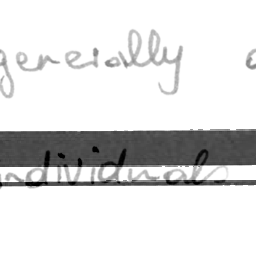 generally
individuals